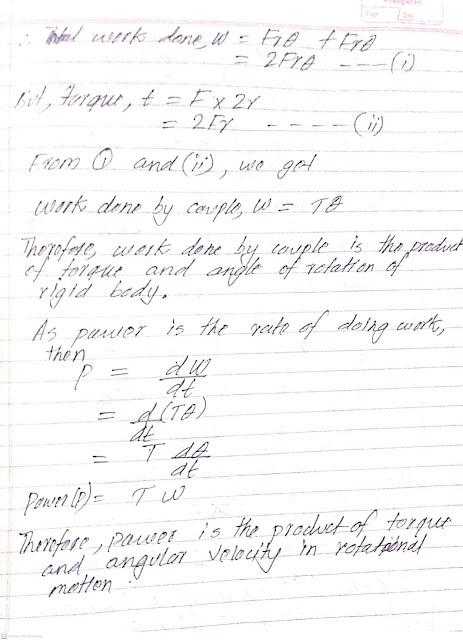 ∴ Total work done, W = Frθ + Frθ
= 2Frθ ---(i)
But, torque, t = F x 2r
= 2Fr ----(ii)
From (i) and (ii), we get
work done by couple, W = Tθ
Therefore, work done by couple is the product
of torque and angle of rotation of
rigid body.
As power is the rate of doing work,
then
P = dW/dt
= d(Tθ)/dt
= T dθ/dt
Power(P) = T ω
Therefore, power is the product of torque
and angular velocity in rotational
motion.